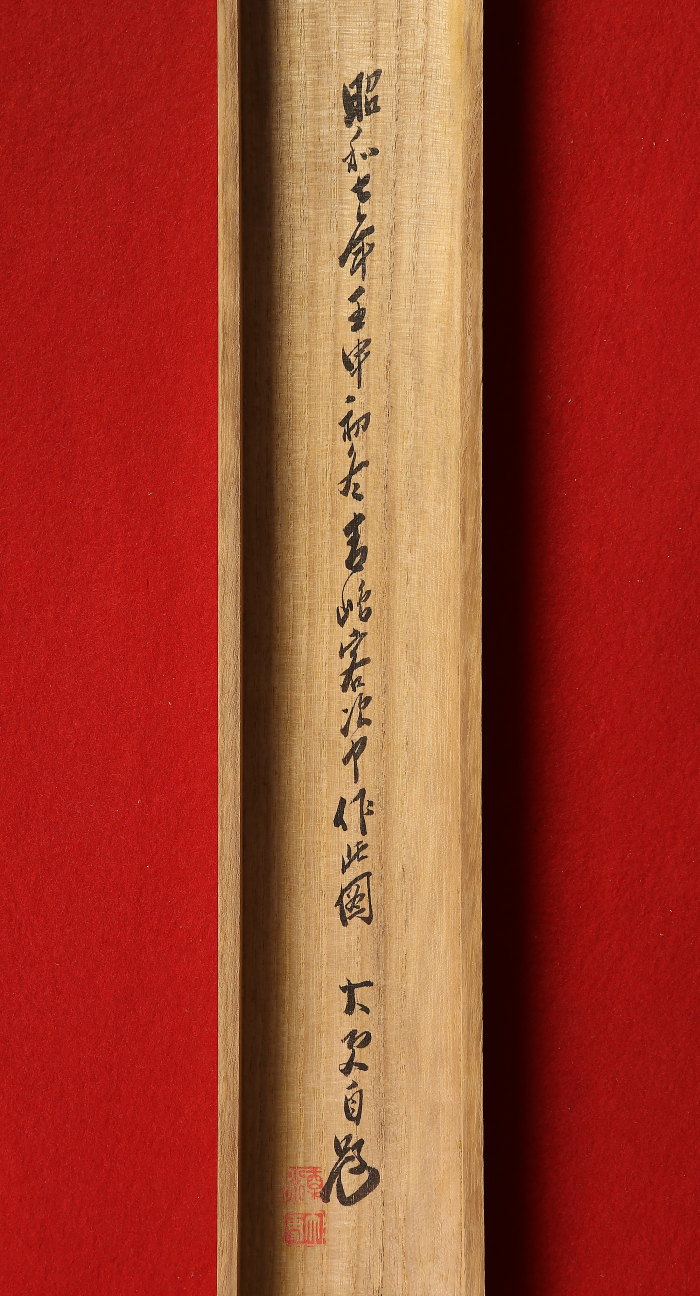 昭和七年壬申初冬青帘客次中作此図 大更自題